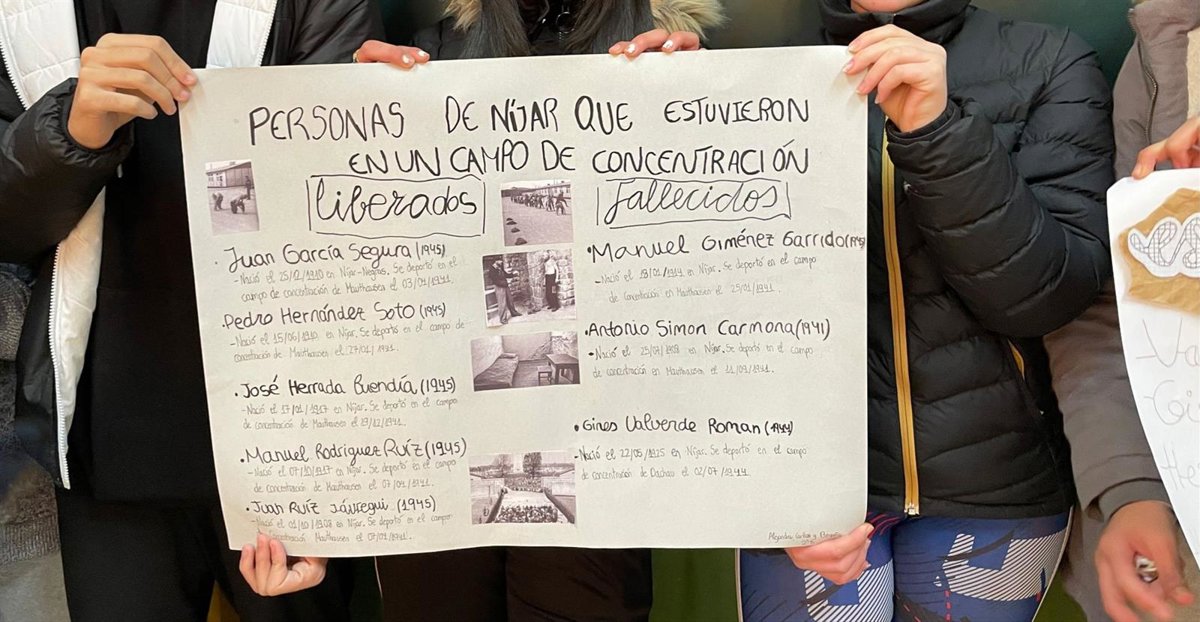 PERSONAS DE NÍJAR QUE ESTUVIERON
EN UN CAMPO DE CONCENTRACIÓN
liberados
fallecidos
· Juan García Segura (1945)
- Nació el 25/12/1910 en Níjar-Negras. Se deportó en el
campo de concentración de Mauthausen el 03/01/1941.
· Pedro Hernández Soto (1945)
- Nació el 15/06/1910 en Níjar. Se deportó en el campo de
concentración de Mauthausen el 27/01/1941.
· José Herrada Buendía (1945)
- Nació el 17/01/1917 en Níjar. Se deportó en el campo
de concentración de Mauthausen el 19/12/1941.
· Manuel Rodriguez Ruíz (1945)
- Nació el 07/10/1917 en Níjar. Se deportó en el campo
de concentración de Mauthausen el 07/01/1941.
· Juan Ruíz Jáuregui (1945)
- Nació el 01/10/1908 en Níjar. Se deportó en el campo
de concentración Mauthausen el 07/01/1941.
· Manuel Giménez Garrido
- Nació el 13/01/1914 en Níjar. Se deportó en campo
de concentración en Mauthausen el 25/01/1941.
· Antonio Simon Carmona (1941)
- Nació el 25/07/1908 en Níjar. Se deportó en el campo
de concentración en Mauthausen el 11/09/1941.
· Gines Valverde Roman (1944)
- Nació el 22/05/1925 en Níjar. Se deportó en el campo
de concentración de Dachau el 02/07/1944.
Alejandra, Carlos y